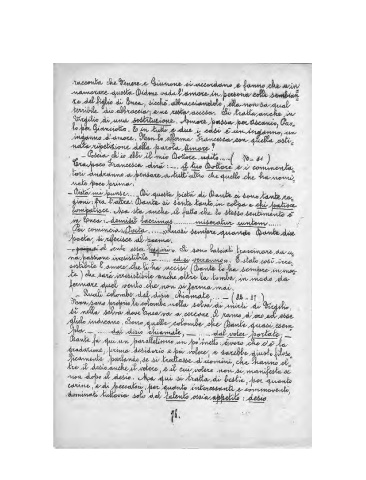 racconta che Venere e Giunone si accordano, e fanno che a in-
namorare questa Didone vada l'amore in persona colle sembian-
ze del figlio di Enea, sicchè abbracciandolo, ella non sa qual
terribile dio abbraccia, e ne resta accesa. Si tratta anche, in
Virgilio di una sostituzione. Amore passa per Ascanio, Pao-
lo per Gianciotto. E in tutti e due i casi è un inganno, un
inganno d'amore. Non lo afferma Francesca con quella osti-
nata ripetizione della parola Amore?
- Poscia ch'io ebbi il mio Dottore udito ... (70 - 81)
Era poco Francesca dirsi ... il tuo Dottore e i commenta-
tori andranno a pensare a tutt'altri che quello che ha nomi-
nato poco prima.
- Pietà mi punse. Di questa pietà di Dante ci sono tante ra-
gioni: fra l'altre: Dante si sente tanto in colpa e chi patisce
compatisce. Ma sta anche il fatto che lo stesso sentimento è
in Enea: demisit lacrimas ... miseratur euntem ...
Poi comincia: Poeta ... Quasi sempre quando Dante dice
poeta, si riferisce al poema.
di sono essi leggeri. Si sono lasciati trascinare da u-
na passione irresistibile ed ei verranno. È stato così irre-
sistibile l'amore che li ha uccisi (Dante lo ha sempre in men-
te) che sarà irresistibile anche oltre la tomba, in modo da
fermare quel vento che non si ferma mai.
- Quali colombe dal disio chiamate, ... (82 - 87)
Non sono proprio le colombe nella selva di mirti di Virgilio,
sì nella selva dove Enea va a cercare il ramo d'oro ed esse
glielo indicano. Sono quelle colombe che Dante quasi esem-
pla: ... dal disio chiamate, ... dal voler portate, -
Dante fa qui un parallelismo un po' nello errore che c'è la
gradazione; prima desiderio e poi volere, e sarebbe giusto, filoso-
ficamente parlando se si trattasse di uomini, che hanno ol-
tre il desio anche il volere, e il cui volere non si manifesta se
non dopo il desio. Ma qui si tratta di bestie, per quanto
carine, e di peccatori, per quanto interessanti e commoventi,
dominati tuttavia solo dal talento ossia appetito: desio
78.